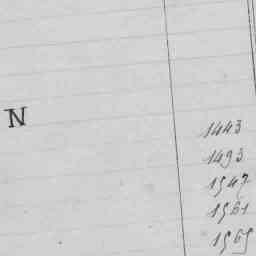 N
1443
1493
1547
1561
1565